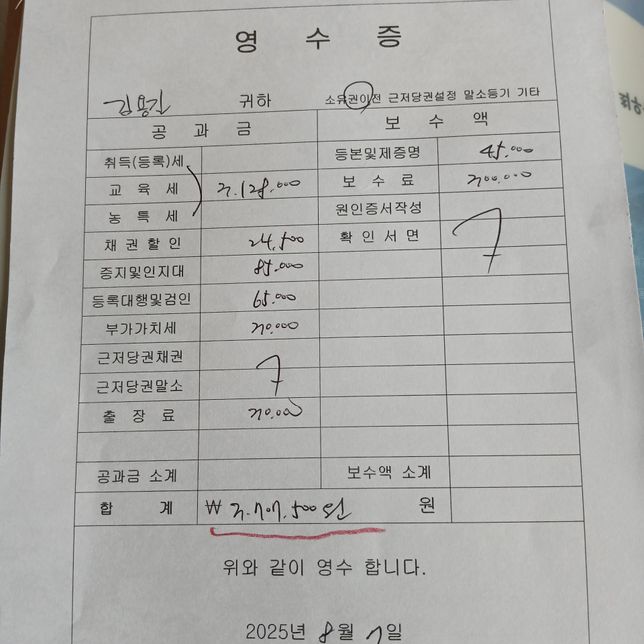 영 수 증
귀하 소유권이전 근저당권설정 말소등기 기타
공 과 금 보 수 액
취득(등록)세 등본및제증명 45.000
교 육 세 3.128.000 보 수 료 300.000
농 특 세 원인증서작성
채 권 할 인 24,500 확 인 서 면
증지및인지대 85.000
등록대행및검인 65.000
부가가치세 30.000
근저당권채권
근저당권말소
출 장 료 30.000
공과금 소계 보수액 소계
합 계 ₩ 3.707.500 원
위와 같이 영수 합니다.
2025년 8월 7일